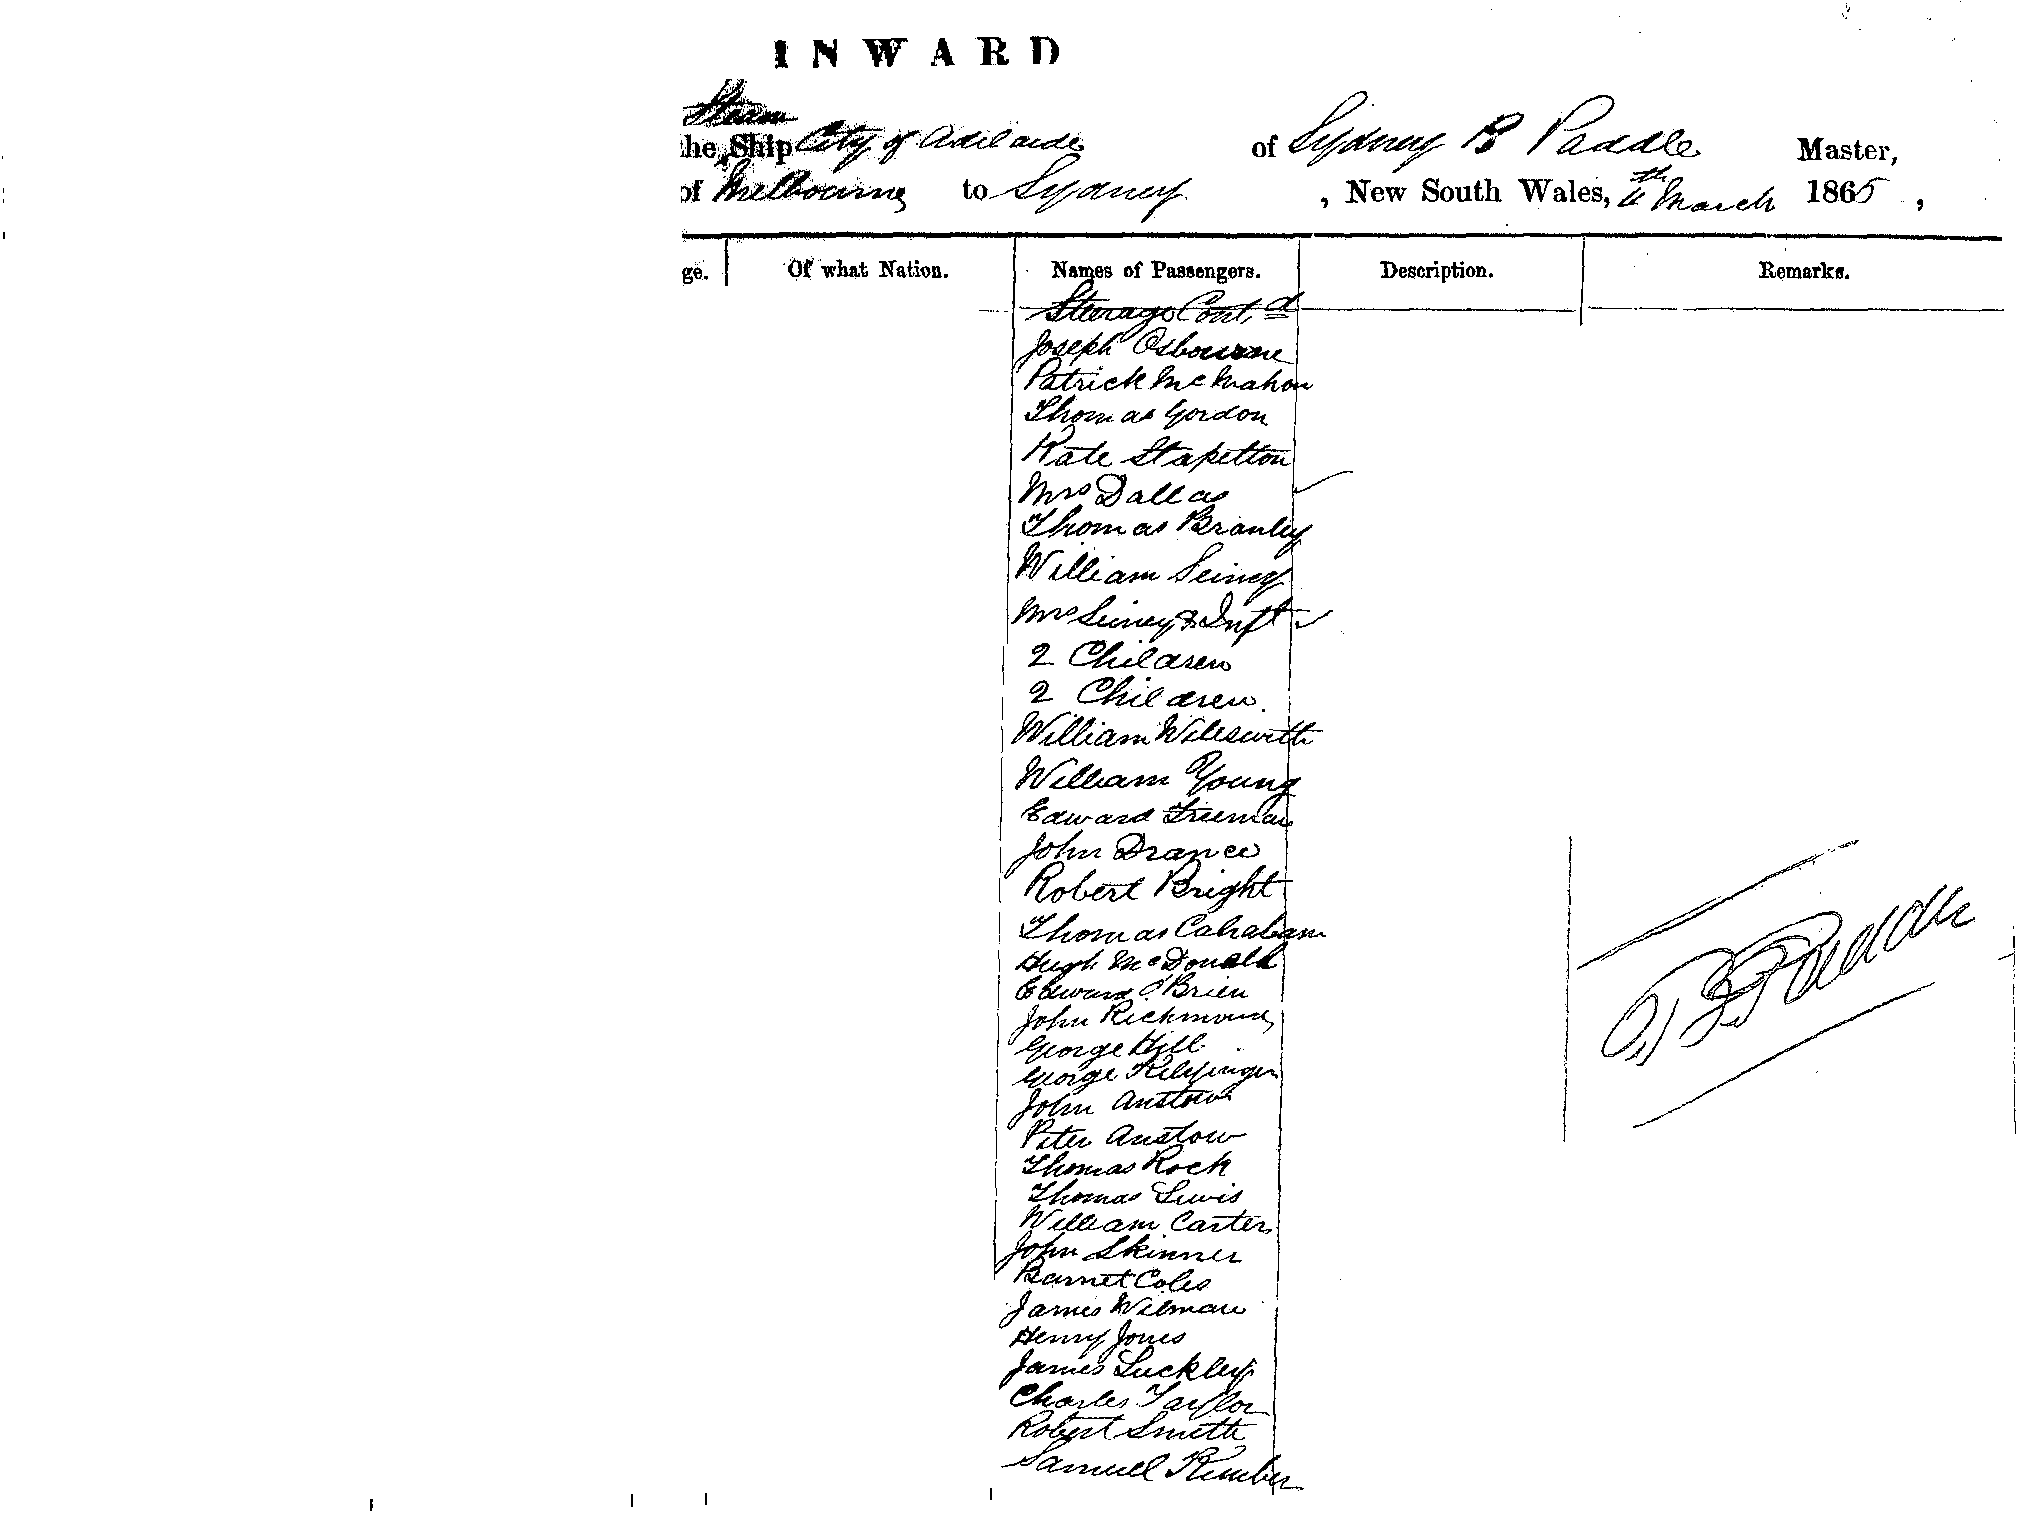 INWARD
Steam
the Ship City of Adelaide of Sydney B Paddle Master,
of Melbourne to Sydney , New South Wales, th March 1865 ,
ge. Of what Nation. Names of Passengers. Description. Remarks.
Steerage Cont,d
Joseph Osbourne
Patrick McMahon
Thomas Gordon
Kate Stapelton
Mrs Dallas
Thomas Branley
William Seiney
Mrs Seiney & Inft
2 Children
2 Children.
William
William Young
Edward Freeman
John Drance
Robert Bright
Thomas
Hugh McDonald
Edward O'Brien
John Richmond
George Hill
George
John Anstow
Peter Anstow
Thomas Rock
Thomas Lewis
William Carter
John Skinner
Barnet Coles
James Wilman
Henry Jones
James Luckley
Charles Taylor
Robert Smith
Samuel Kimber